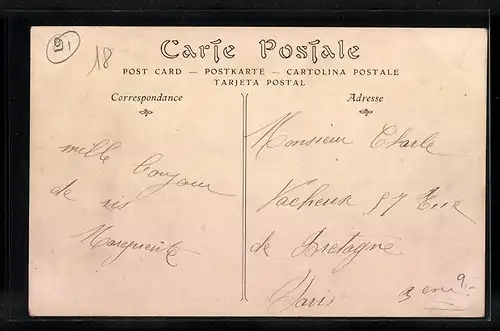 91
18
Carte Postale
POST CARD — POSTKARTE — CARTOLINA POSTALE
TARJETA POSTAL
Correspondance
mille bonjour
de
Marguerite
Adresse
Monsieur Charle
Vacheux 97 Rue
de Bretagne
Paris